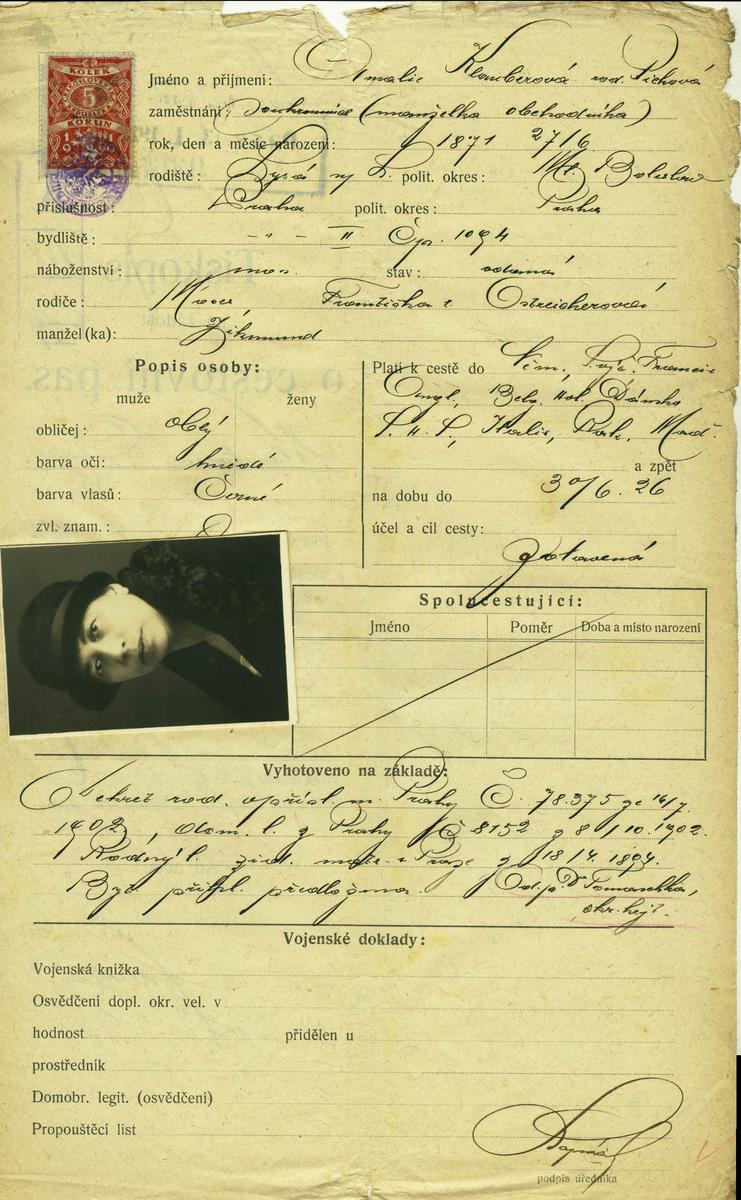 KOLEK
5
KORUN
Jméno a příjmení: Amalie Klauberová roz. Pichová
zaměstnání: soukromnice (manželka obchodníka)
rok, den a měsíc narození: 1871 27/6
rodiště: Lysá n/L. polit. okres: Ml. Boleslav
příslušnost: Praha polit. okres: Praha
bydliště: -"- - II Čp. 1094
náboženství: mos. stav: vdaná
rodiče: Františka r. Ostreicherová
manžel(ka): Zikmund
Popis osoby:
muže ženy
obličej: oblý
barva očí: hnědé
barva vlasů: černé
zvl. znam.:
Platí k cestě do Něm., Švýc. Francie
Angl., Belg. Hol. Dánsko
S. H. S., Italie, Rak. Maď.
a zpět
na dobu do 30/6. 26
účel a cíl cesty:
zotavená
Spolucestující:
Jméno Poměr Doba a místo narození
Vyhotoveno na základě:
Dekret rad. o přísl. m. Prahy Č. 78.375 ze 16/7
1902, dom. l. z Prahy Č 8152 z 8/10. 1902.
Rodný l. žid. matr. v Praze z 18/4. 1894.
Byt. přihl. předložena. Od. p. Dr Tomaschka,
okr. hejt.
Vojenské doklady:
Vojenská knížka
Osvědčení dopl. okr. vel. v
hodnost přidělen u
prostředník
Domobr. legit. (osvědčení)
Propouštěcí list
podpis úředníka